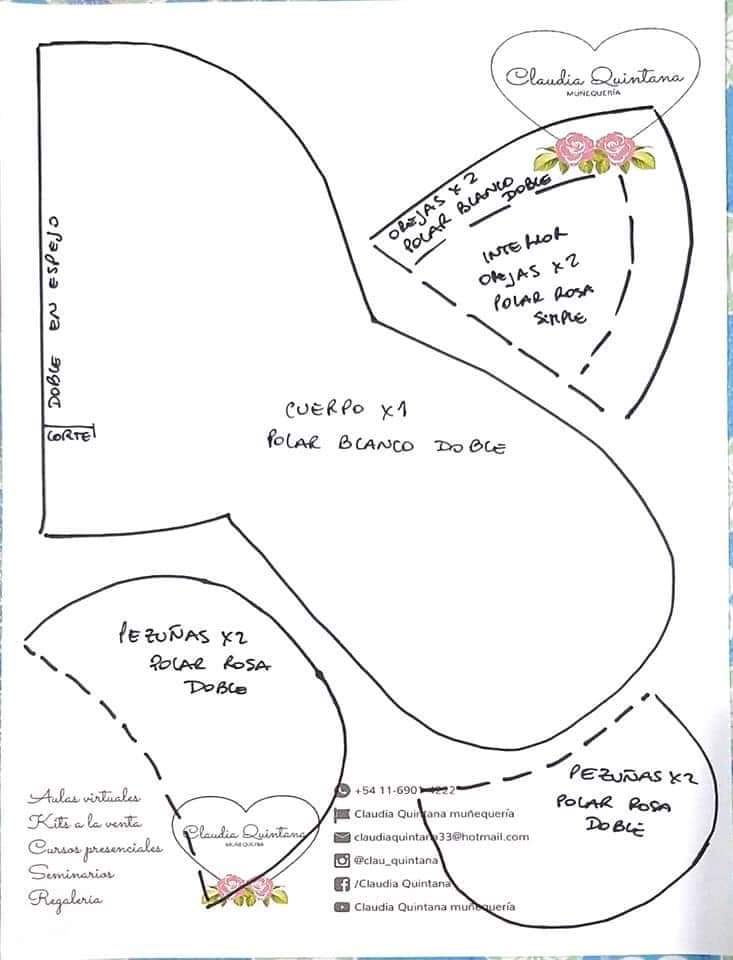 Claudia Quintana
MUÑEQUERÍA
OREJAS X2
POLAR BLANCO
DOBLE
INTERIOR
OREJAS X2
POLAR ROSA
SIMPLE
DOBLE EN ESPEJO
CORTE
CUERPO X1
POLAR BLANCO DOBLE
PEZUÑAS X2
POLAR ROSA
DOBLE
PEZUÑAS X2
POLAR ROSA
DOBLE
Aulas virtuales
Kits a la venta
Cursos presenciales
Seminarios
Regaleria
Claudia Quintana
MUÑEQUERÍA
+54 11-6901-4222
Claudia Quintana muñequería
claudiaquintana33@hotmail.com
@clau_quintana
/Claudia Quintana
Claudia Quintana muñequería